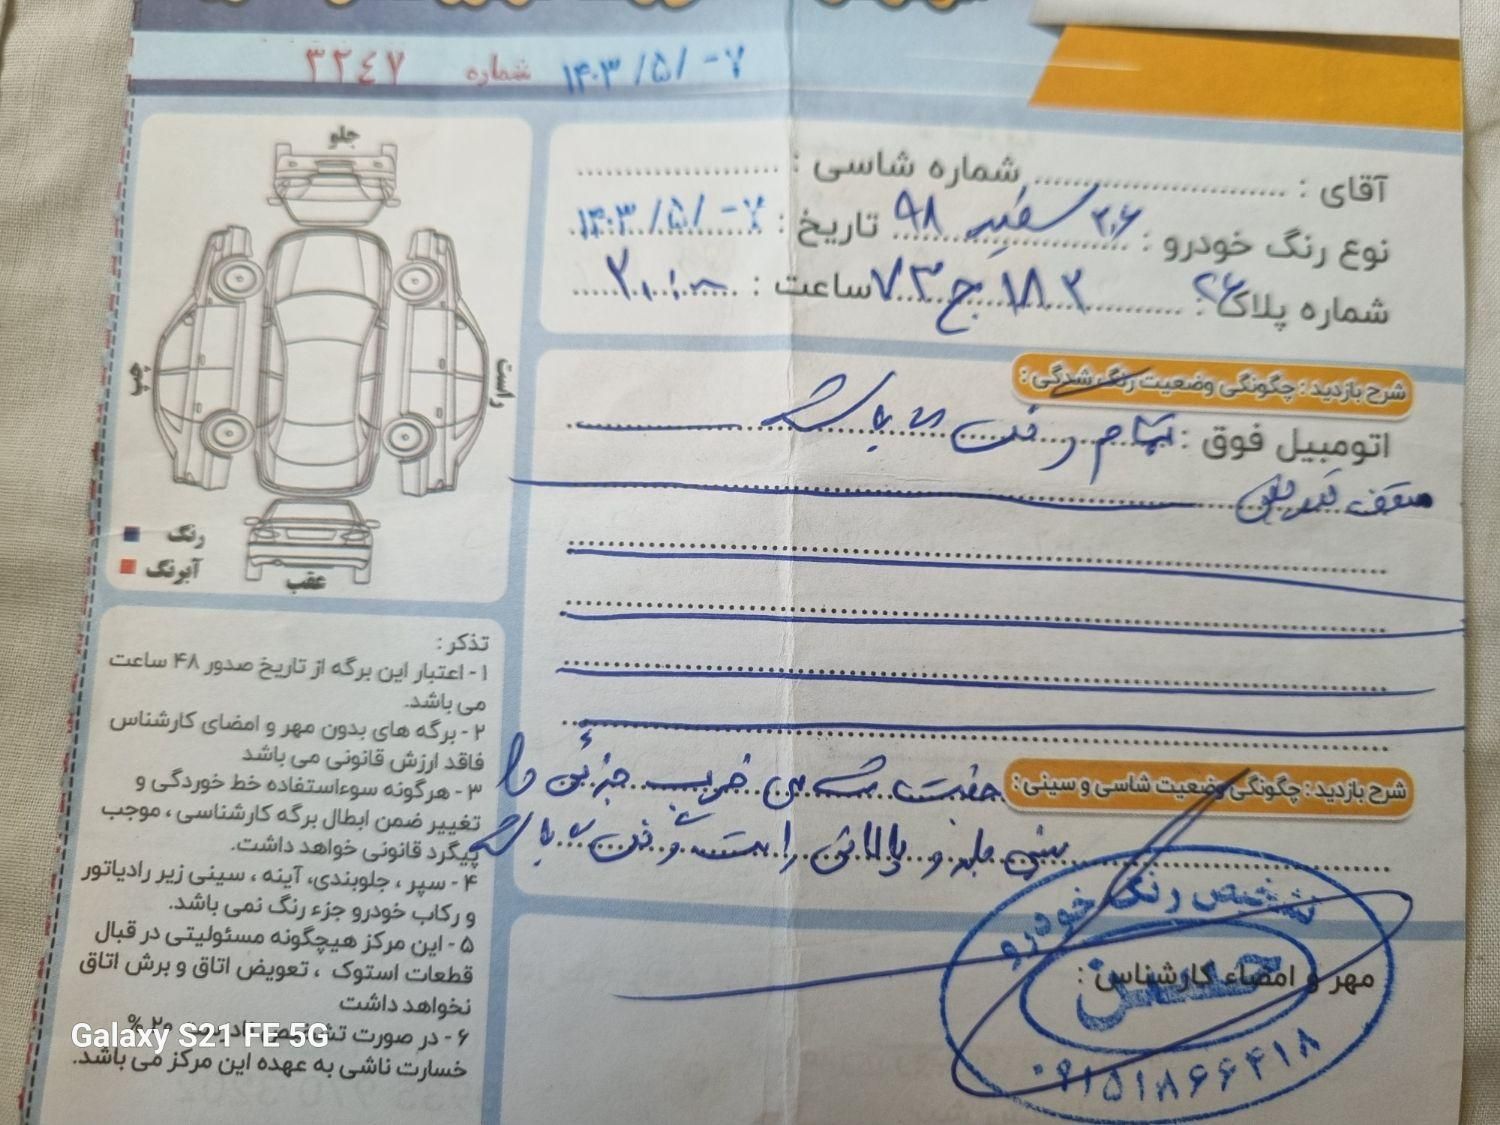 شماره ۳۲٤۷
۱۴۰۳/۵/۰۷
آقای : شماره شاسی :
نوع رنگ خودرو : ۲۰۶ سفید ۹۸ تاریخ : ۱۴۰۳/۵/۰۷
شماره پلاک : ۱۸۲ ج ۷۳ ساعت :
جلو
چپ
راست
عقب
رنگ
آبرنگ
شرح بازدید : چگونگی وضعیت رنگ شدگی :
اتومبیل فوق : تمام رنگ می باشد
سقف
شرح بازدید : چگونگی وضعیت شاسی و سینی : جفت شاسی ضرب جزئی دارد
سینی جلو و پالانی راست رنگ می باشد
مهر و امضاء کارشناس :
تشخیص رنگ خودرو
حسن
۰۹۱۵۱۸۶۶۴۱۸
تذکر :
۱- اعتبار این برگه از تاریخ صدور ۴۸ ساعت
می باشد.
۲- برگه های بدون مهر و امضای کارشناس
فاقد ارزش قانونی می باشد
۳- هرگونه سوءاستفاده خط خوردگی و
تغییر ضمن ابطال برگه کارشناسی ، موجب
پیگرد قانونی خواهد داشت.
۴- سپر ، جلوبندی، آینه ، سینی زیر رادیاتور
و رکاب خودرو جزء رنگ نمی باشد.
۵- این مرکز هیچگونه مسئولیتی در قبال
قطعات استوک ، تعویض اتاق و برش اتاق
نخواهد داشت
۶- در صورت ۲۰ %
خسارت ناشی به عهده این مرکز می باشد.
Galaxy S21 FE 5G